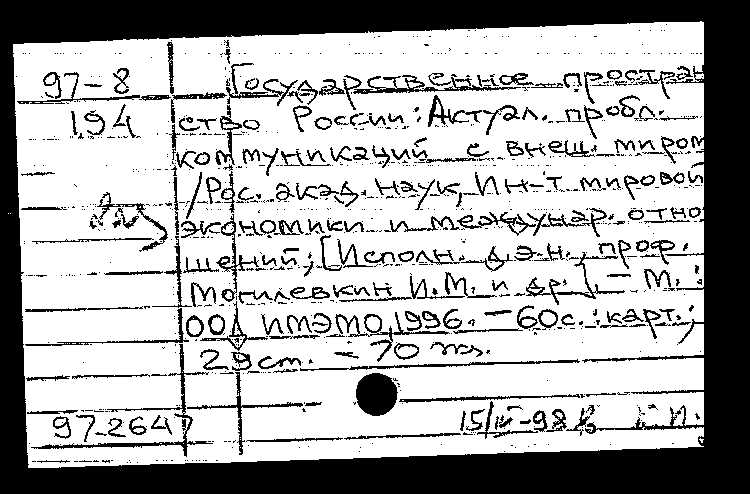 97-8 Государственное простран
194 ство России: Актуал. пробл.
коммуникаций с внеш. миром
/Рос. акад. наук, Ин-т мировой
экономики и междунар. отно
шений; [Исполн. д.э.н., проф.
Могилевкин И.М. и др.]. — М.:
ООД ИМЭМО, 1996. — 60с.: карт.;
29 см. — 70 экз.
97-2647 15/IV-98